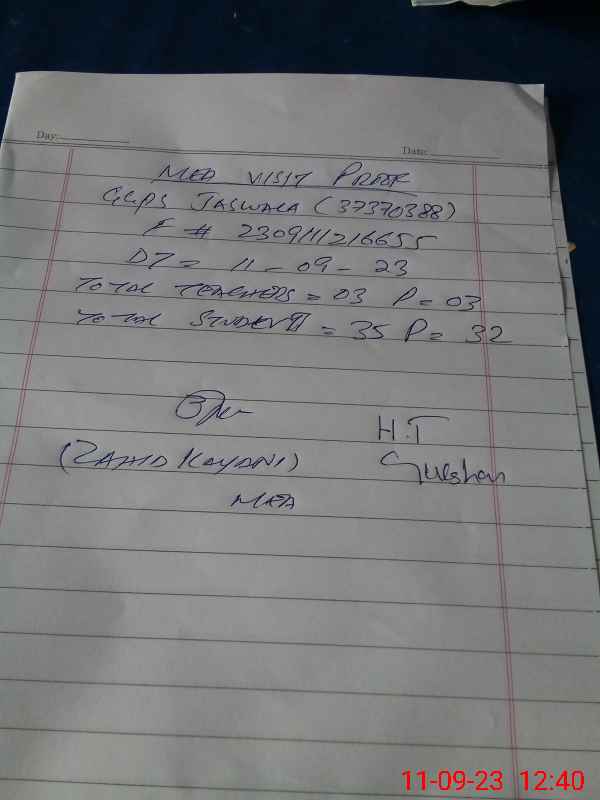 Day:
Date:
MEA VISIT PROOF
GGPS JASWALA (37370388)
F # 2309111216655
DT = 11 - 09 - 23
TOTAL TEACHERS = 03 P = 03
TOTAL STUDENTS = 35 P = 32
H.T
(ZAHID KAYANI)
Gulshan
MEA
11-09-23 12:40